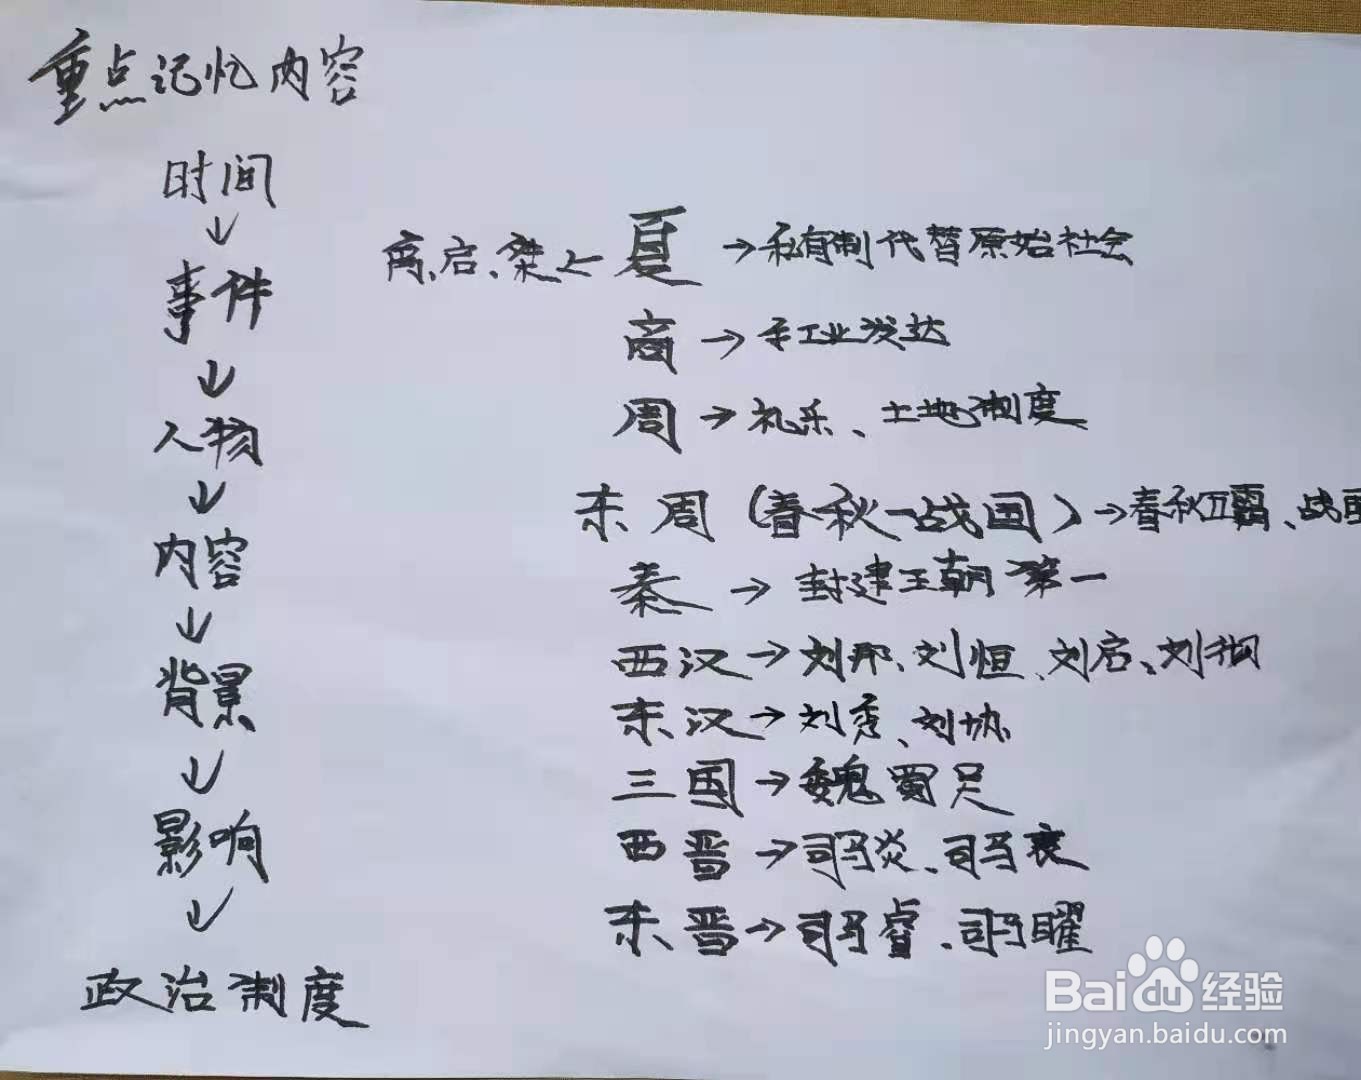 重点记忆内容
时间
↓
事件
↓
人物
↓
内容
↓
背景
↓
影响
↓
政治制度
禹、启、桀←夏→私有制代替原始社会
商→手工业发达
周→礼乐、土地制度
东周(春秋—战国)→春秋五霸、战
秦→封建王朝第一
西汉→刘邦、刘恒、刘启、刘彻
东汉→刘秀、刘协
三国→魏蜀吴
西晋→司马炎、司马衷
东晋→司马睿、司马曜
Baidu经验
jingyan.baidu.com